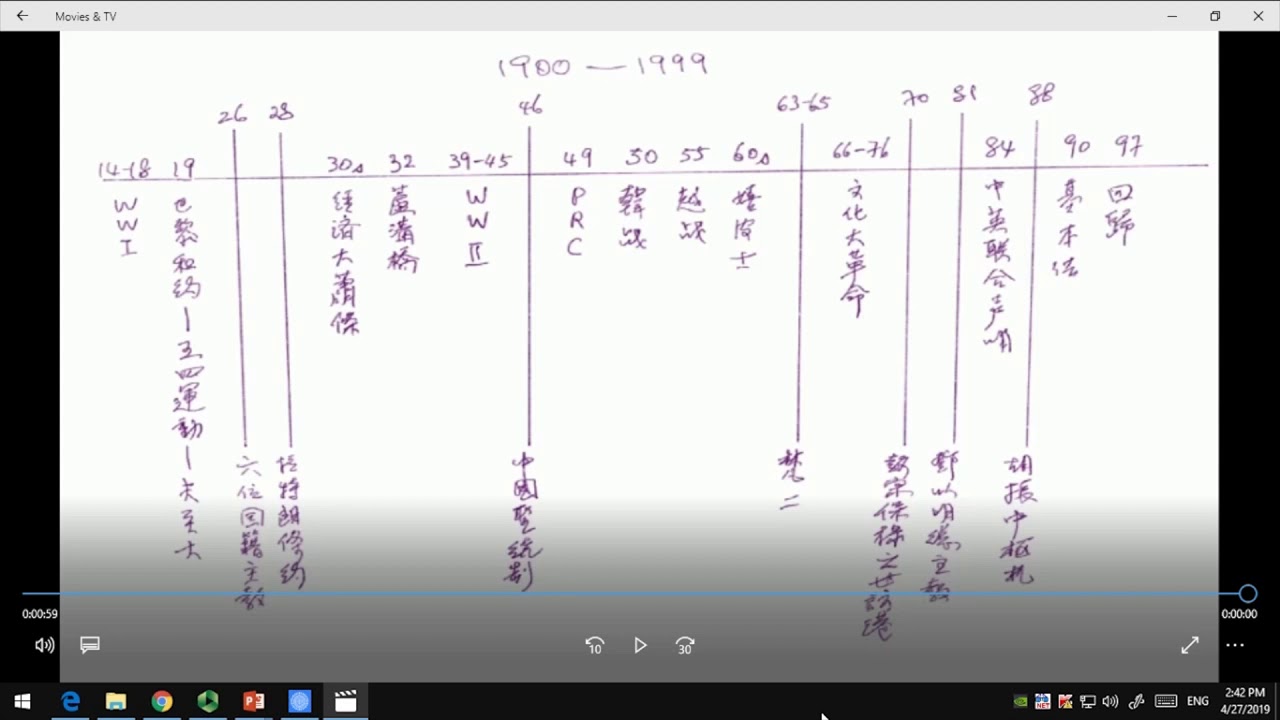 Movies & TV
1900 — 1999
26
28
46
63-65
70
81
88
14-18
19
30s
32
39-45
49
50
55
60s
66-76
84
90
97
WWI
巴黎和约—五四運動—夫至大
经济大萧條
蘆溝橋
WWII
PRC
韓战
越战
嬉皮士
文化大革命
中英联合声明
基本法
回歸
六位国籍主教
拉特朗條约
中國聖统制
梵二
保禄六世訪港
鄧以明總主教
胡振中枢机
0:00:59
0:00:00
10
30
ENG
2:42 PM
4/27/2019